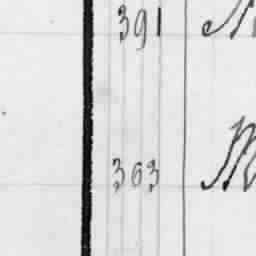 391
363